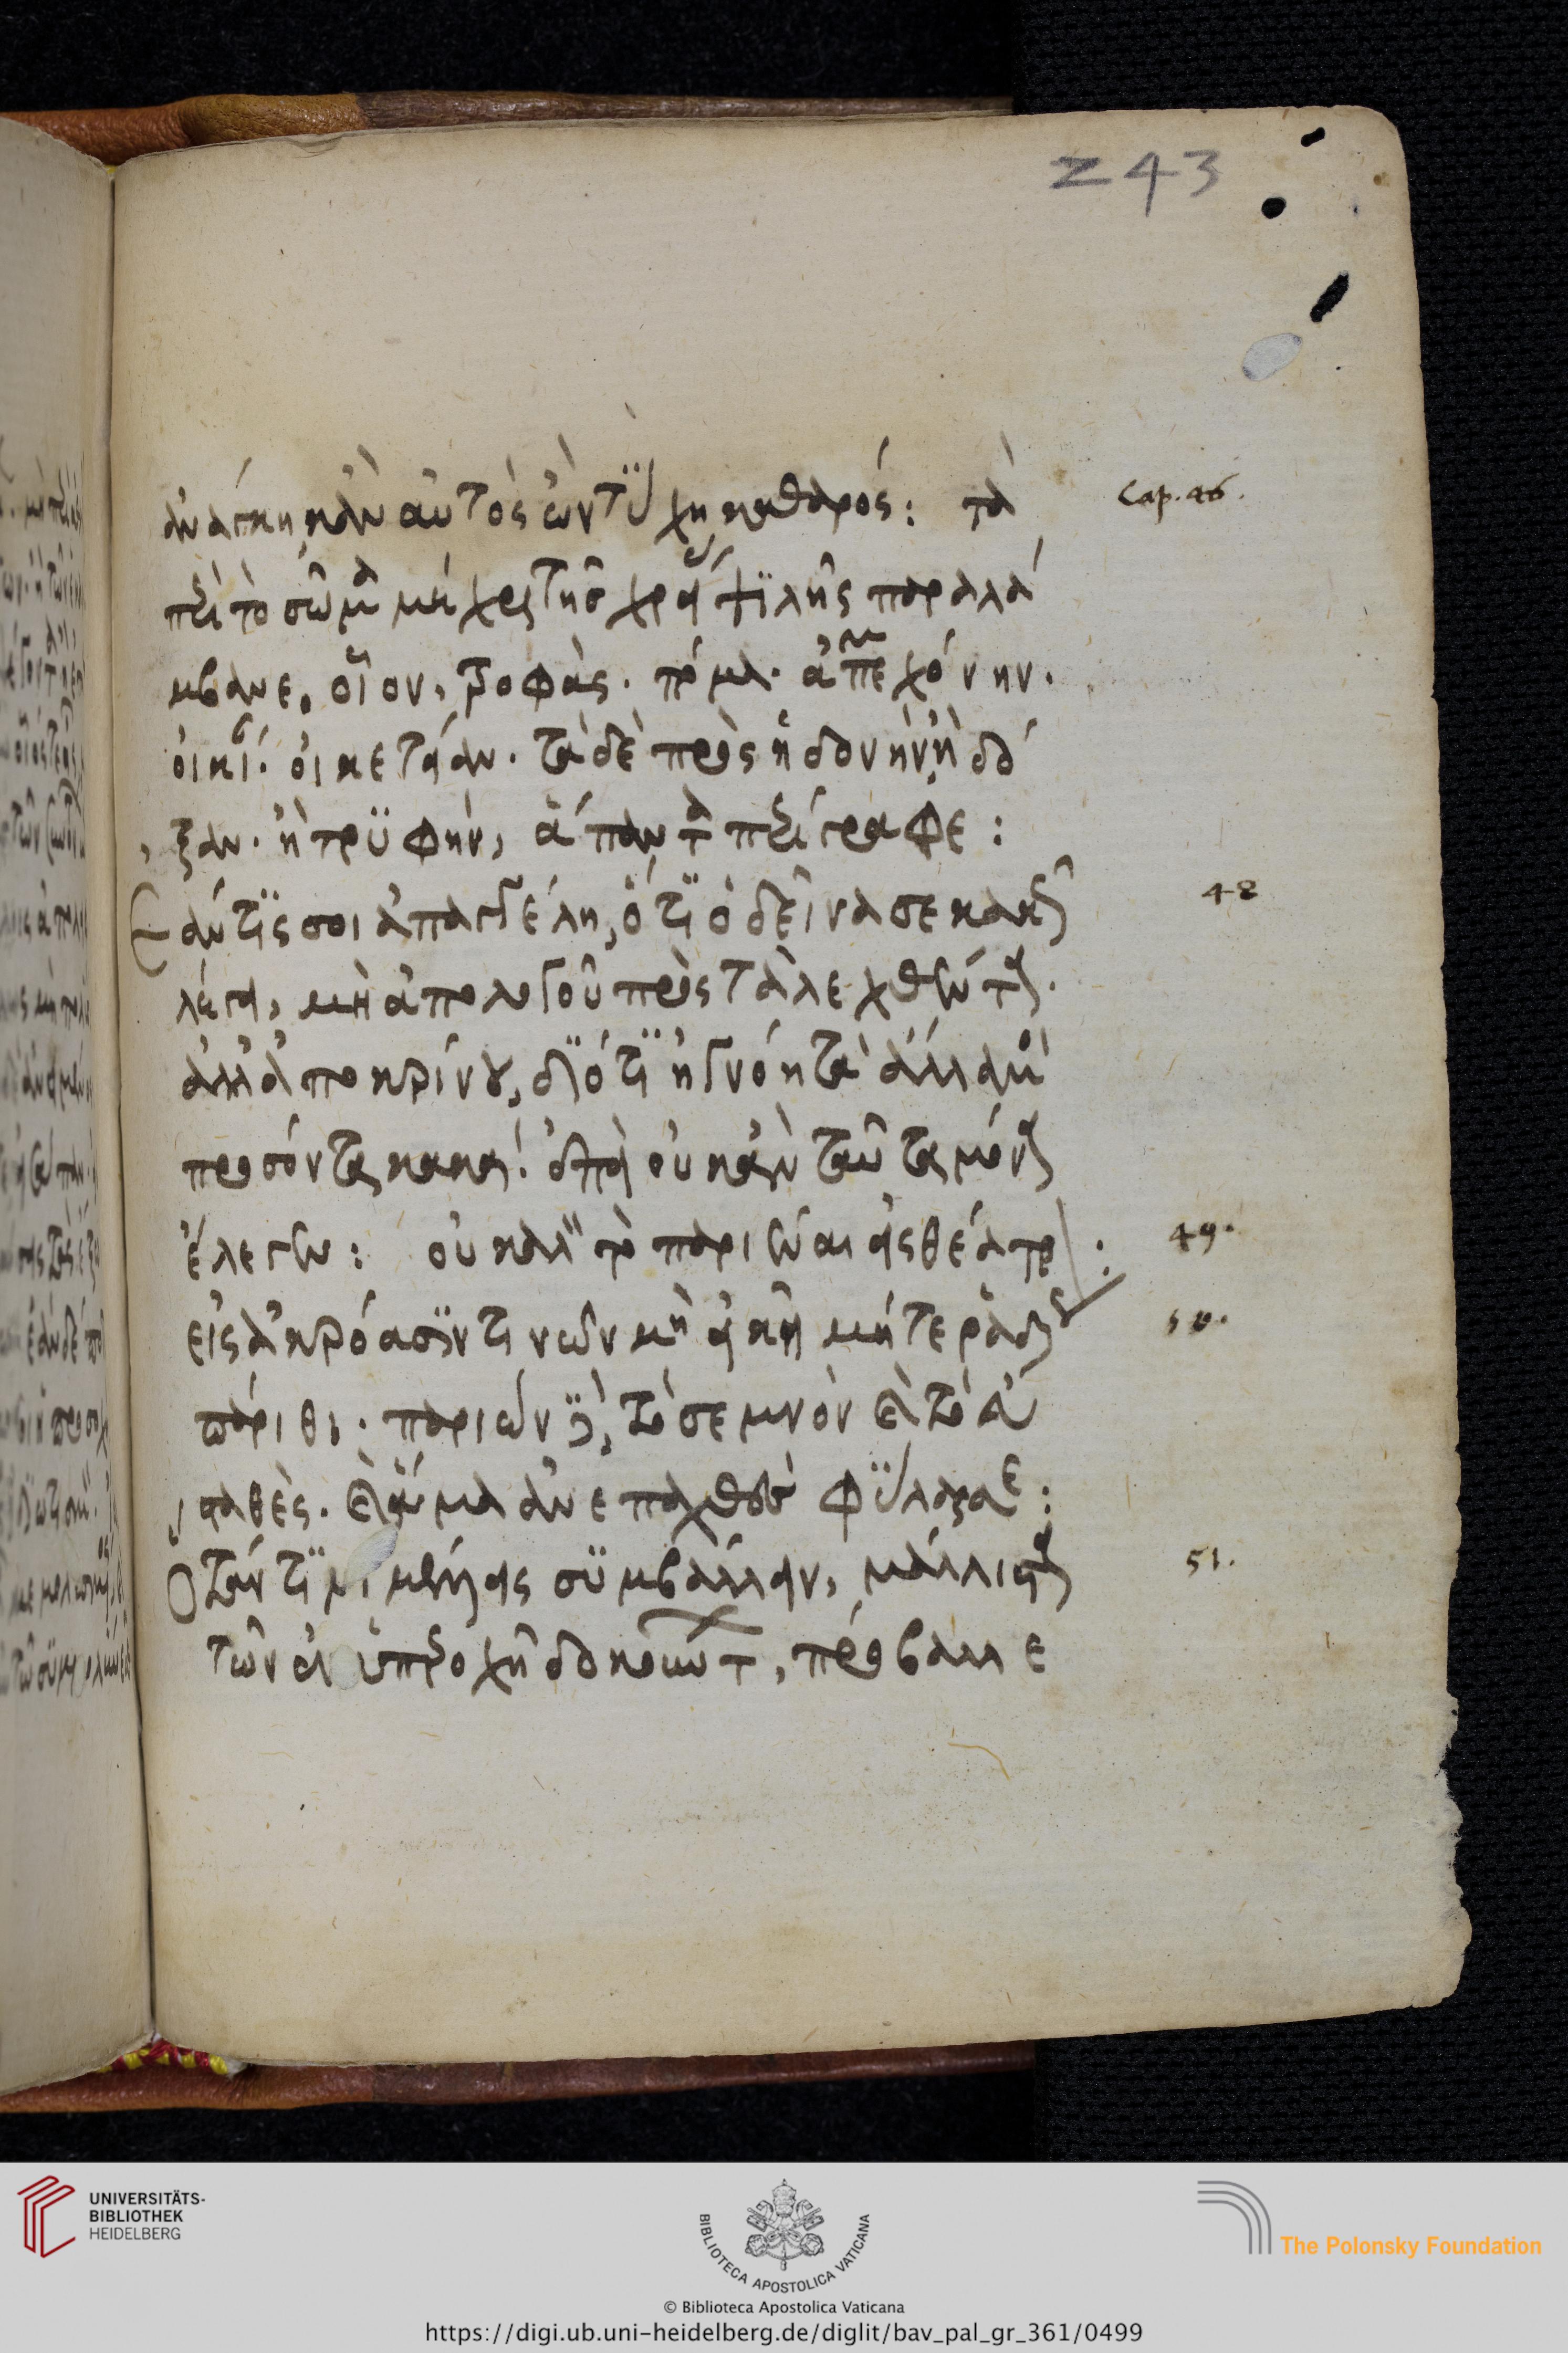 243
ἀνάγκη, κἂν αὐτὸς ὢν τύχη καθαρός: τὰ
Cap. 46.
περὶ τὸ σῶμα μέχρι τῆς χρείας ψιλῆς παραλά
μβανε, οἷον, τροφὰς. πόμα. ἀμπεχόνην.
οἰκίαν. οἰκετείαν. τὰ δὲ πρὸς ἡδονὴν, ἢ δό
ξαν. ἢ τρυφὴν, ἅπαντα περίγραφε:
ἐάν τίς σοι ἀπαγγέλη, ὅτι ὁ δεῖνα σε κακῶς
48
λέγει, μὴ ἀπολογοῦ πρὸς τὰ λεχθέντα.
ἀλλ' ἀποκρίνου, διότι ἠγνόει τὰ ἄλλα μοι
προσόντα κακά. ἐπεὶ οὐκ ἂν ταῦτα μόνα
ἔλεγεν: οὐκ ἀναγκαῖον τὸ παριέναι εἰς θέατρα:
49.
εἰς ἀκρόασίν τινων μὴ εἰκῆ μήτε ῥαδίως
50.
πάριθι. παριὼν δὲ, τὸ σεμνὸν καὶ τὸ εὐ
σταθὲς. καὶ ἅμα ἀνεπαχθὲς φύλασσε:
Ὅταν τινὶ μέλλῃς συμβάλλειν, μάλιστα
51.
τῶν ἐν ὑπεροχῇ δοκούντων, πρόβαλλε
UNIVERSITÄTS-
BIBLIOTHEK
HEIDELBERG
BIBLIOTECA APOSTOLICA VATICANA
The Polonsky Foundation
© Biblioteca Apostolica Vaticana
https://digi.ub.uni-heidelberg.de/diglit/bav_pal_gr_361/0499